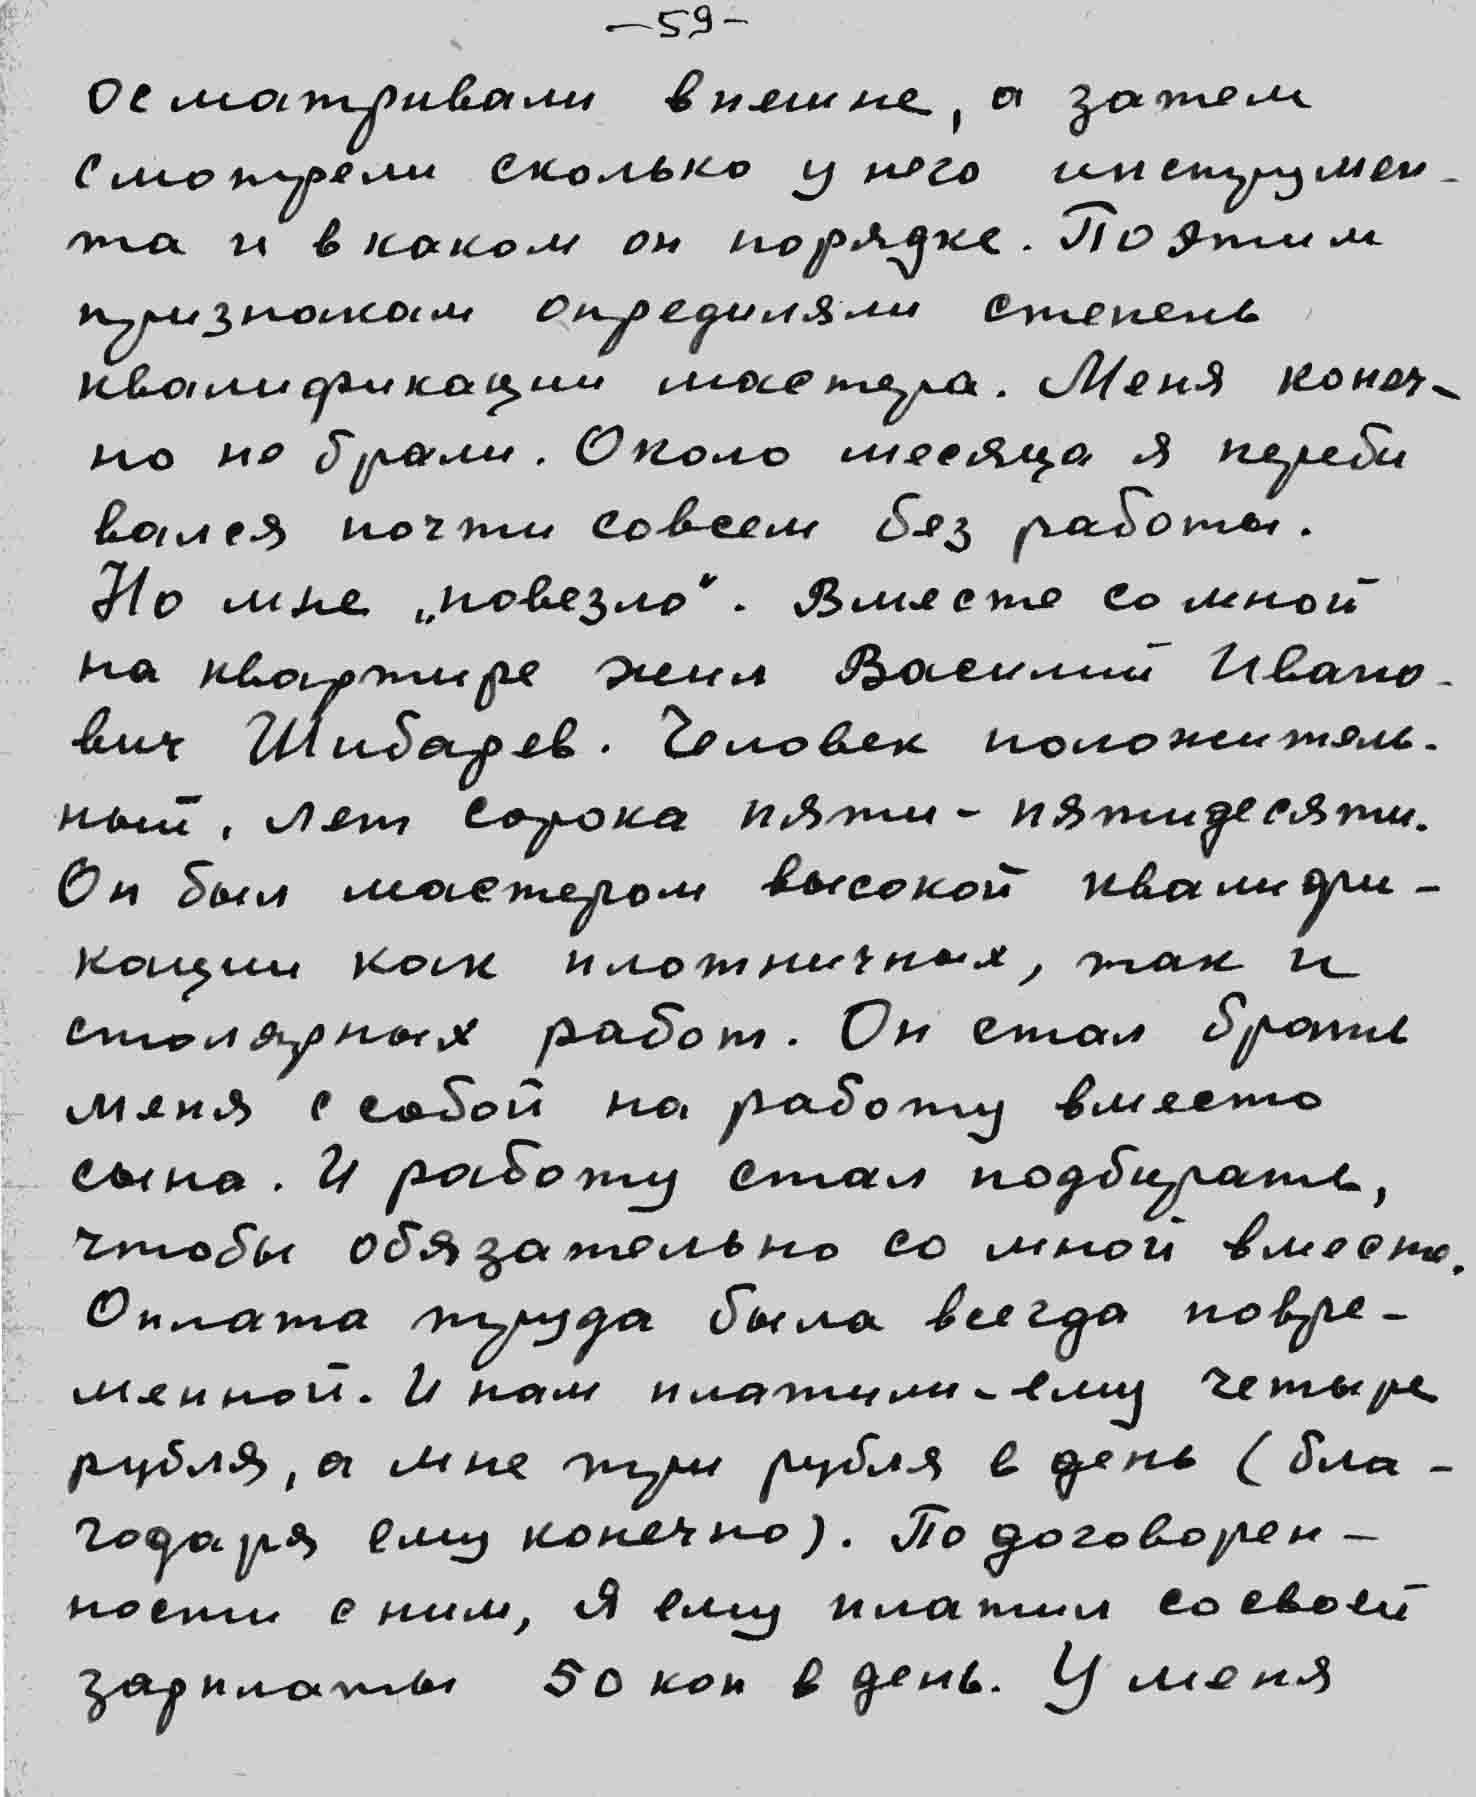 —59—
осматривали внешне, а затем
смотрели сколько у него инструмен-
та и в каком он порядке. По этим
признакам определяли степень
квалификации мастера. Меня конеч-
но не брали. Около месяца я переби
вался почти совсем без работы.
Но мне „повезло“. Вместе со мной
на квартире жил Василий Ивано-
вич Шибарев. Человек положитель-
ный, лет сорока пяти-пятидесяти.
Он был мастером высокой квалифи-
кации как плотничных, так и
столярных работ. Он стал брать
меня с собой на работу вместо
сына. И работу стал подбирать,
чтобы обязательно со мной вместе.
Оплата труда была всегда повре-
менной. И нам платили-ему четыре
рубля, а мне три рубля в день (бла-
годаря ему конечно). По договорен-
ности с ним, я ему платил со своей
зарплаты 50 коп в день. У меня